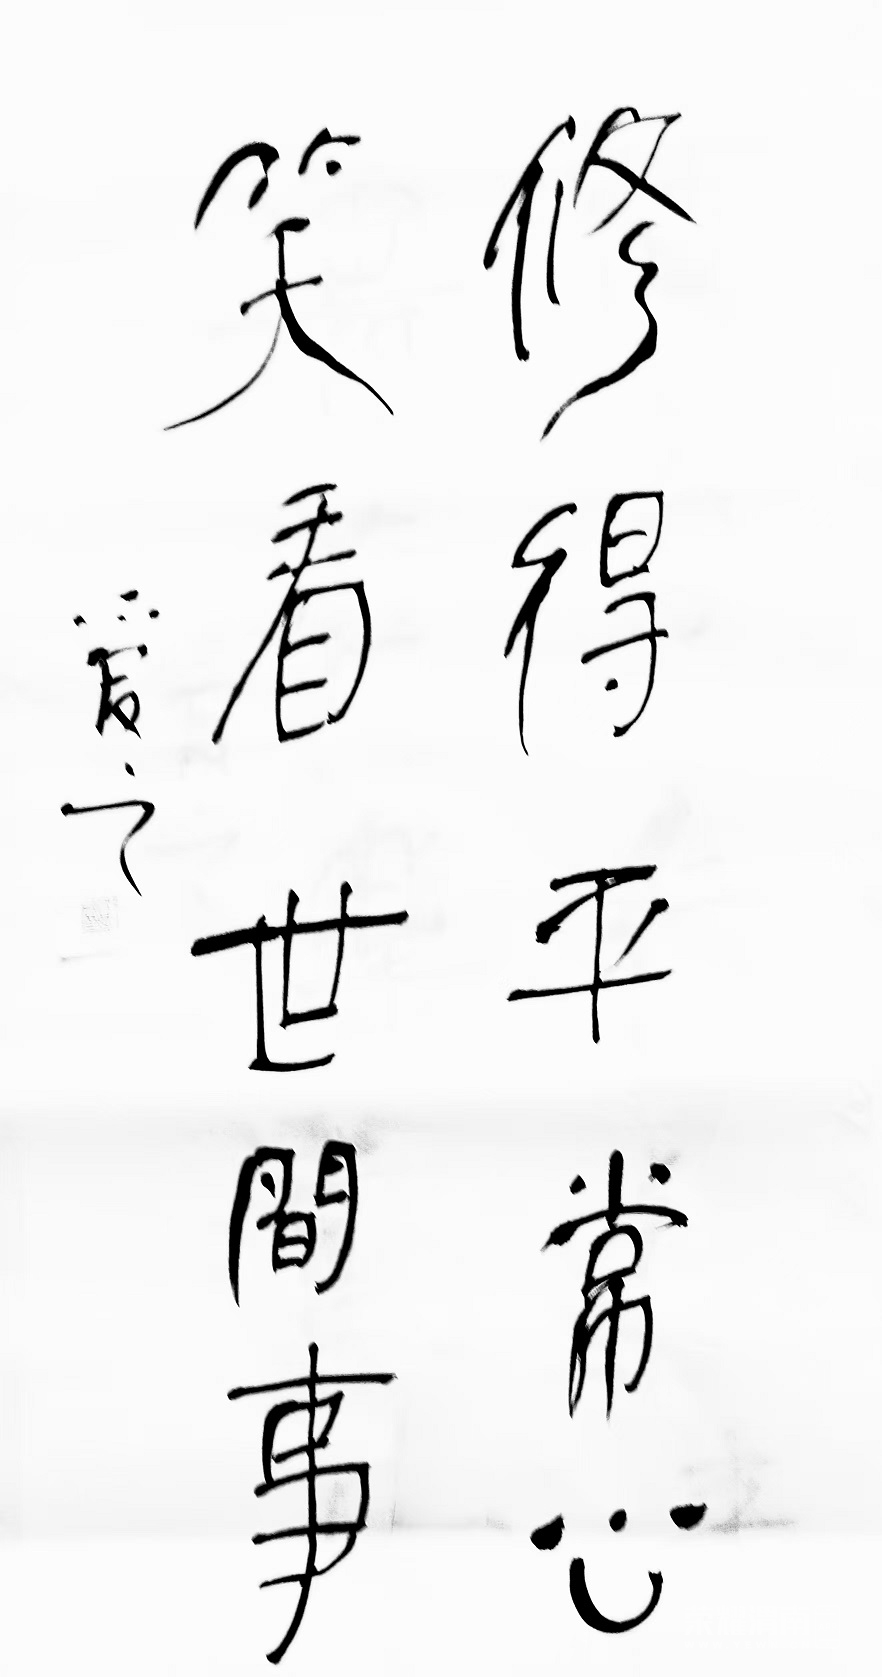 修得平常心
笑看世間事
爱之